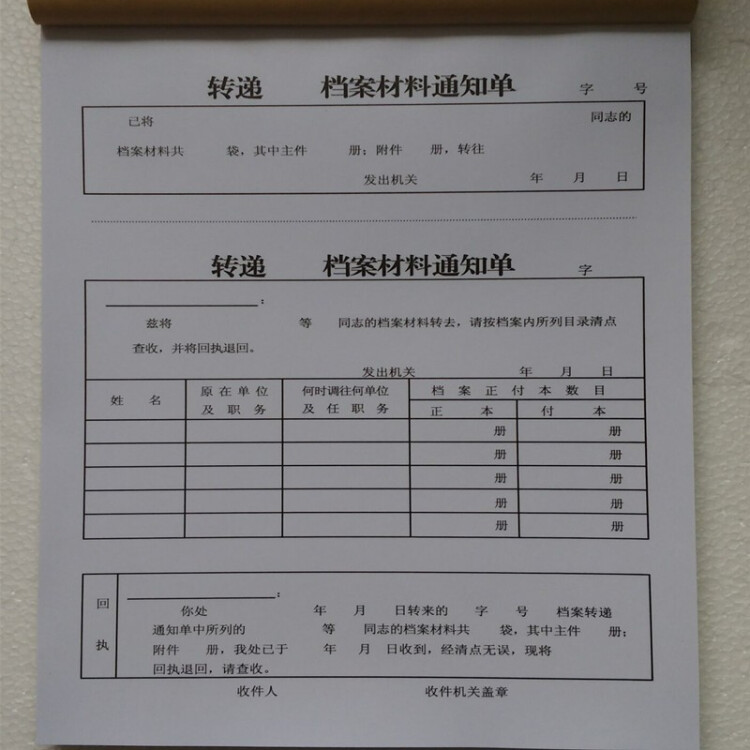 转递 档案材料通知单 字 号
已将 同志的
档案材料共 袋，其中主件 册；附件 册，转往
发出机关 年 月 日
转递 档案材料通知单 字
：
兹将 等 同志的档案材料转去，请按档案内所列目录清点
查收，并将回执退回。
发出机关 年 月 日
姓 名 原在单位及职务 何时调往何单位及任职务 档案正付本数目
正本 付本
册 册
册 册
册 册
册 册
册 册
回执
：
你处 年 月 日转来的 字 号 档案转递
通知单中所列的 等 同志的档案材料共 袋，其中主件 册；
附件 册，我处已于 年 月 日收到，经清点无误，现将
回执退回，请查收。
收件人 收件机关盖章